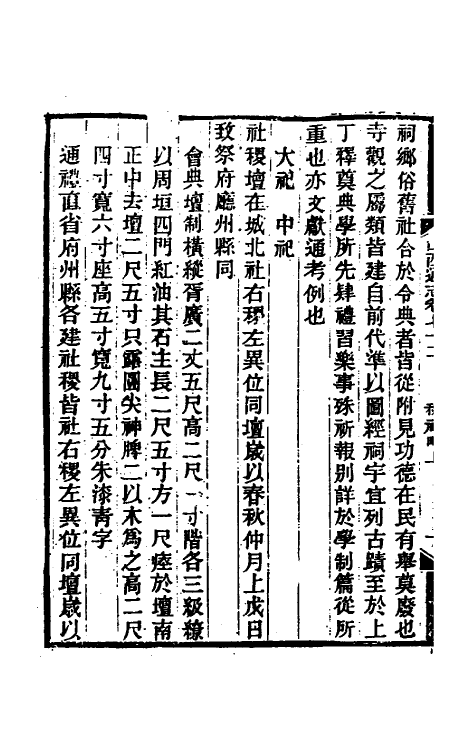 祠鄉俗舊社合於令典者皆從附見功德在民有舉莫廢也
寺觀之屬類皆建自前代準以圖經祠宇宜列古蹟至於上
丁釋奠典學所先肄禮習樂事殊祈報別詳於學制篇從所
重也亦文獻通考例也
大祀　中祀
社稷壇在城北社右稷左異位同壇歲以春秋仲月上戊日
致祭府廳州縣同
會典壇制橫縱胥廣二丈五尺高二尺一寸階各三級繚
以周垣四門紅油其石主長二尺五寸方一尺瘞於壇南
正中去壇二尺五寸只露圓尖神牌二以木爲之高二尺
四寸寬六寸座高五寸寬九寸五分朱漆靑字
通禮直省府州縣各建社稷皆社右稷左異位同壇歲以